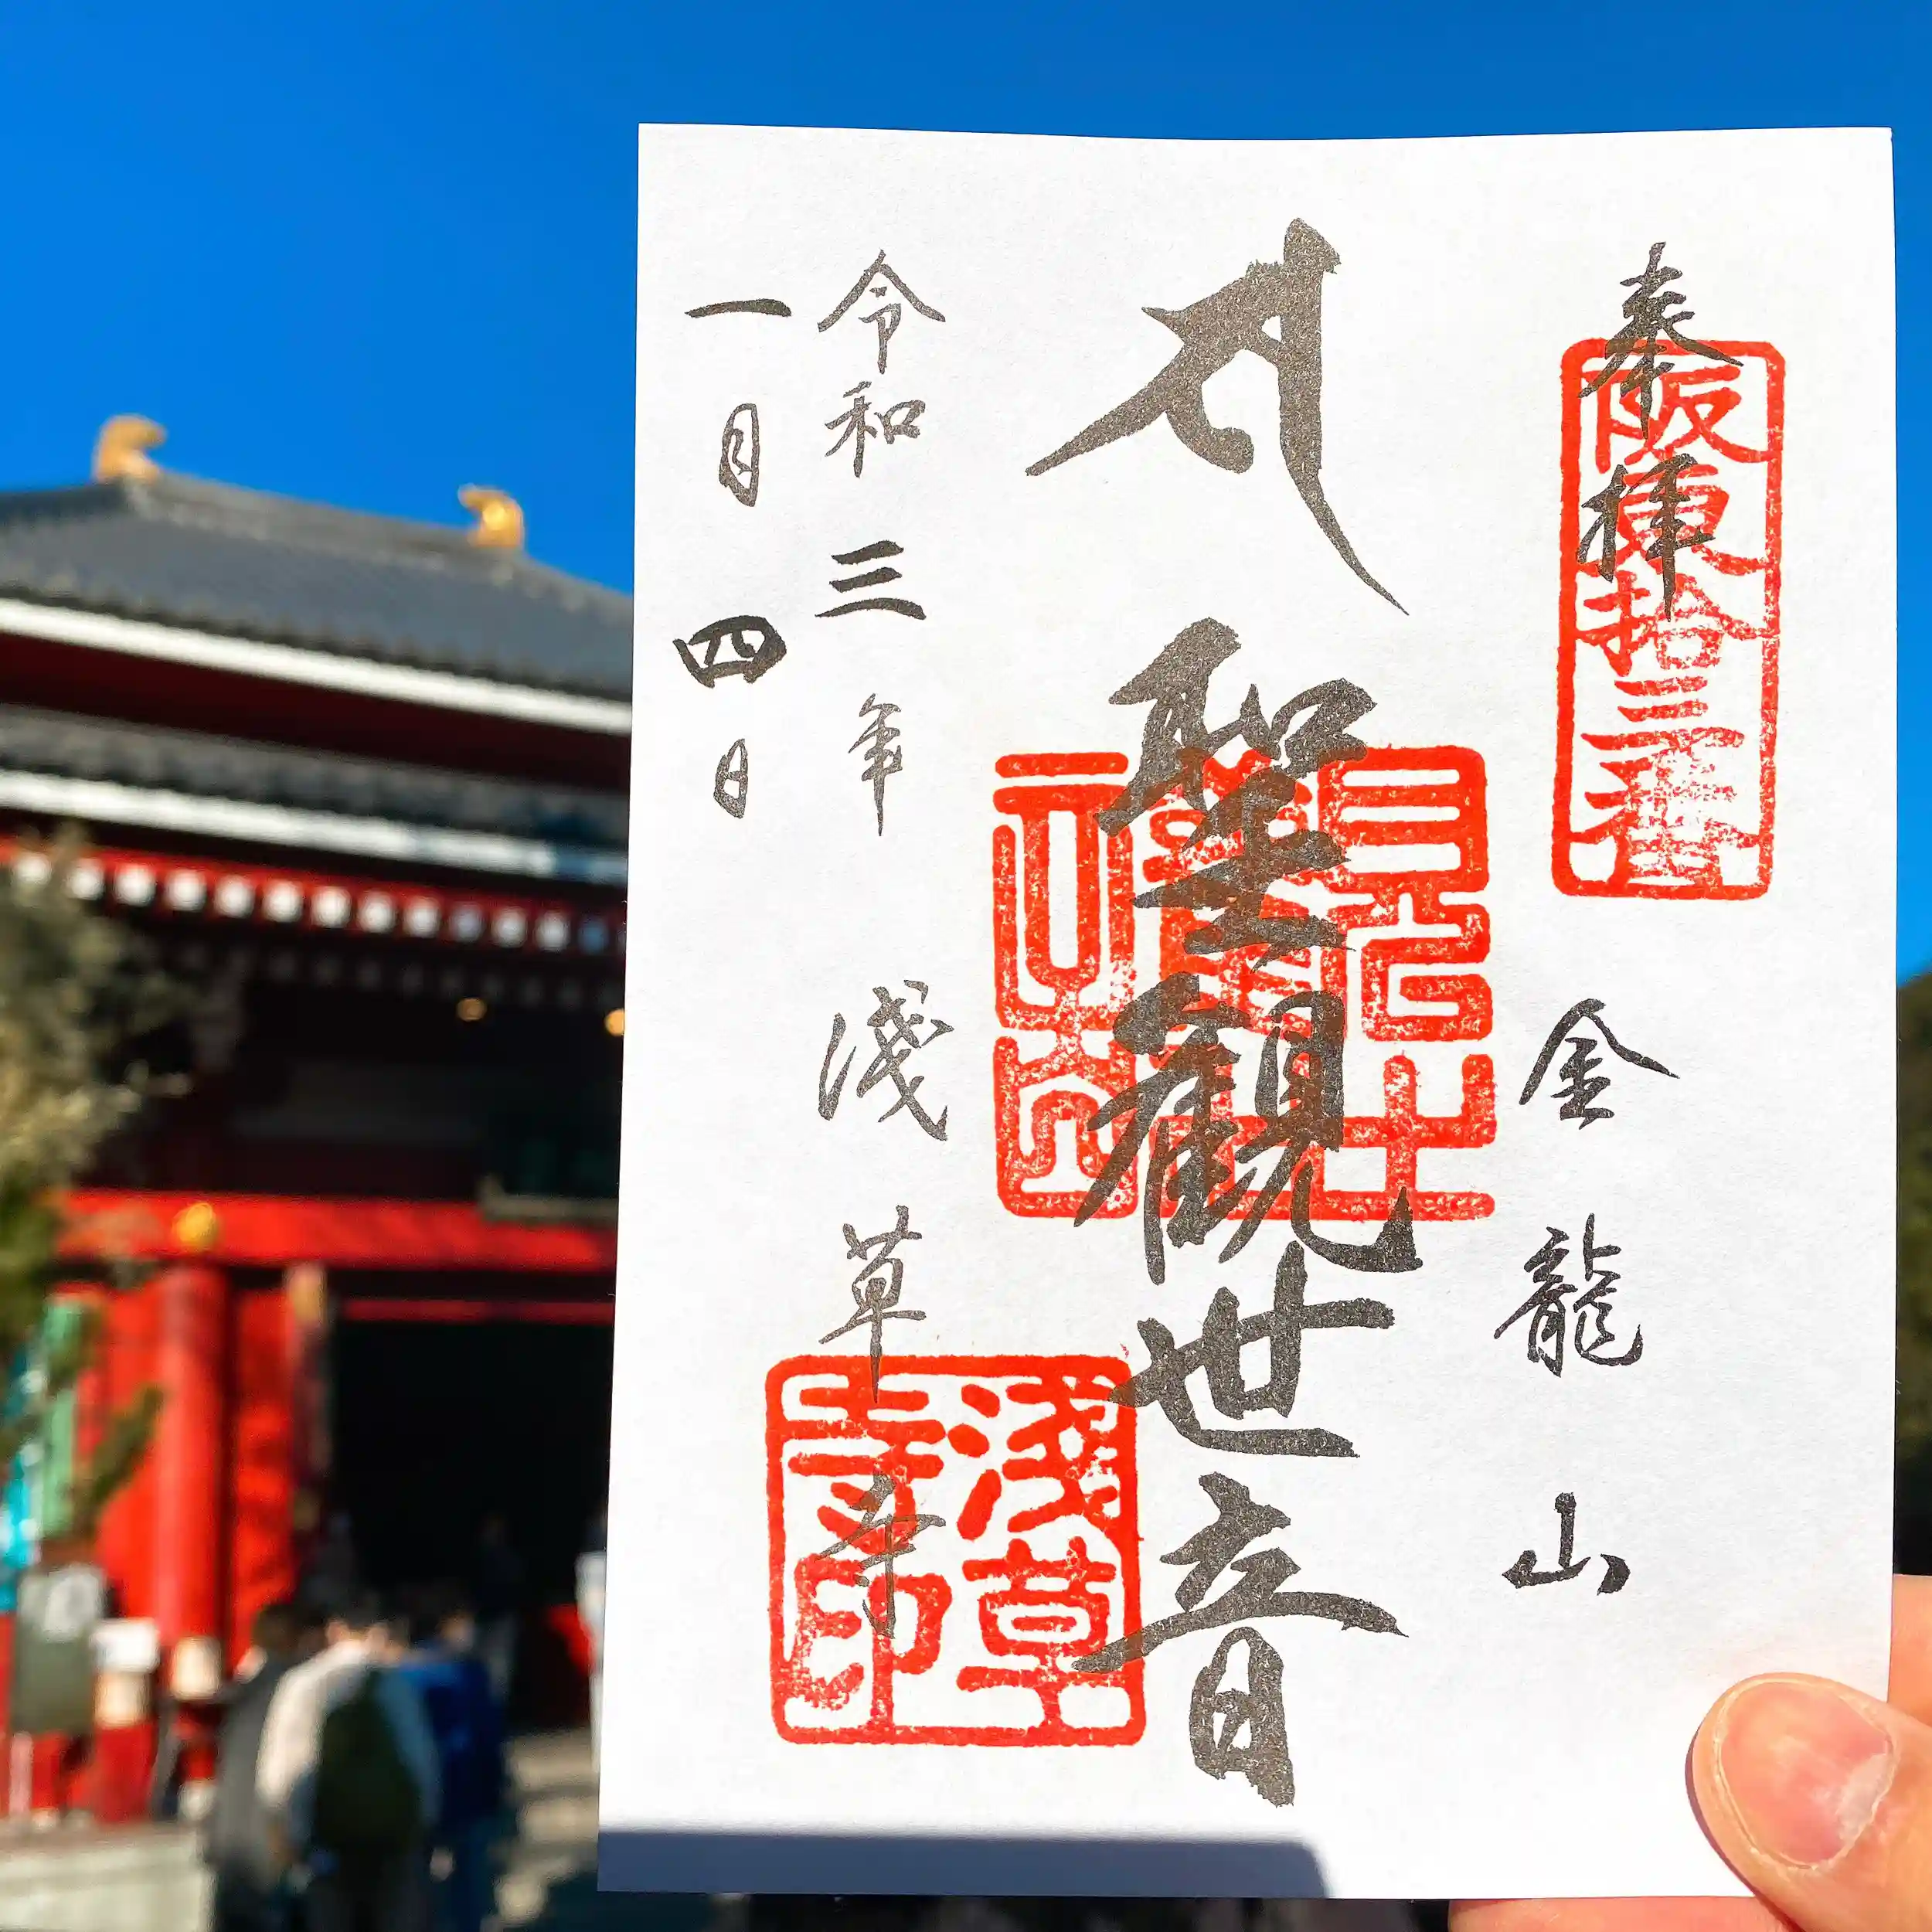 奉拝
阪東拾三番
金龍山
サ 聖観世音
令和三年 淺草寺
淺草寺印
一月四日